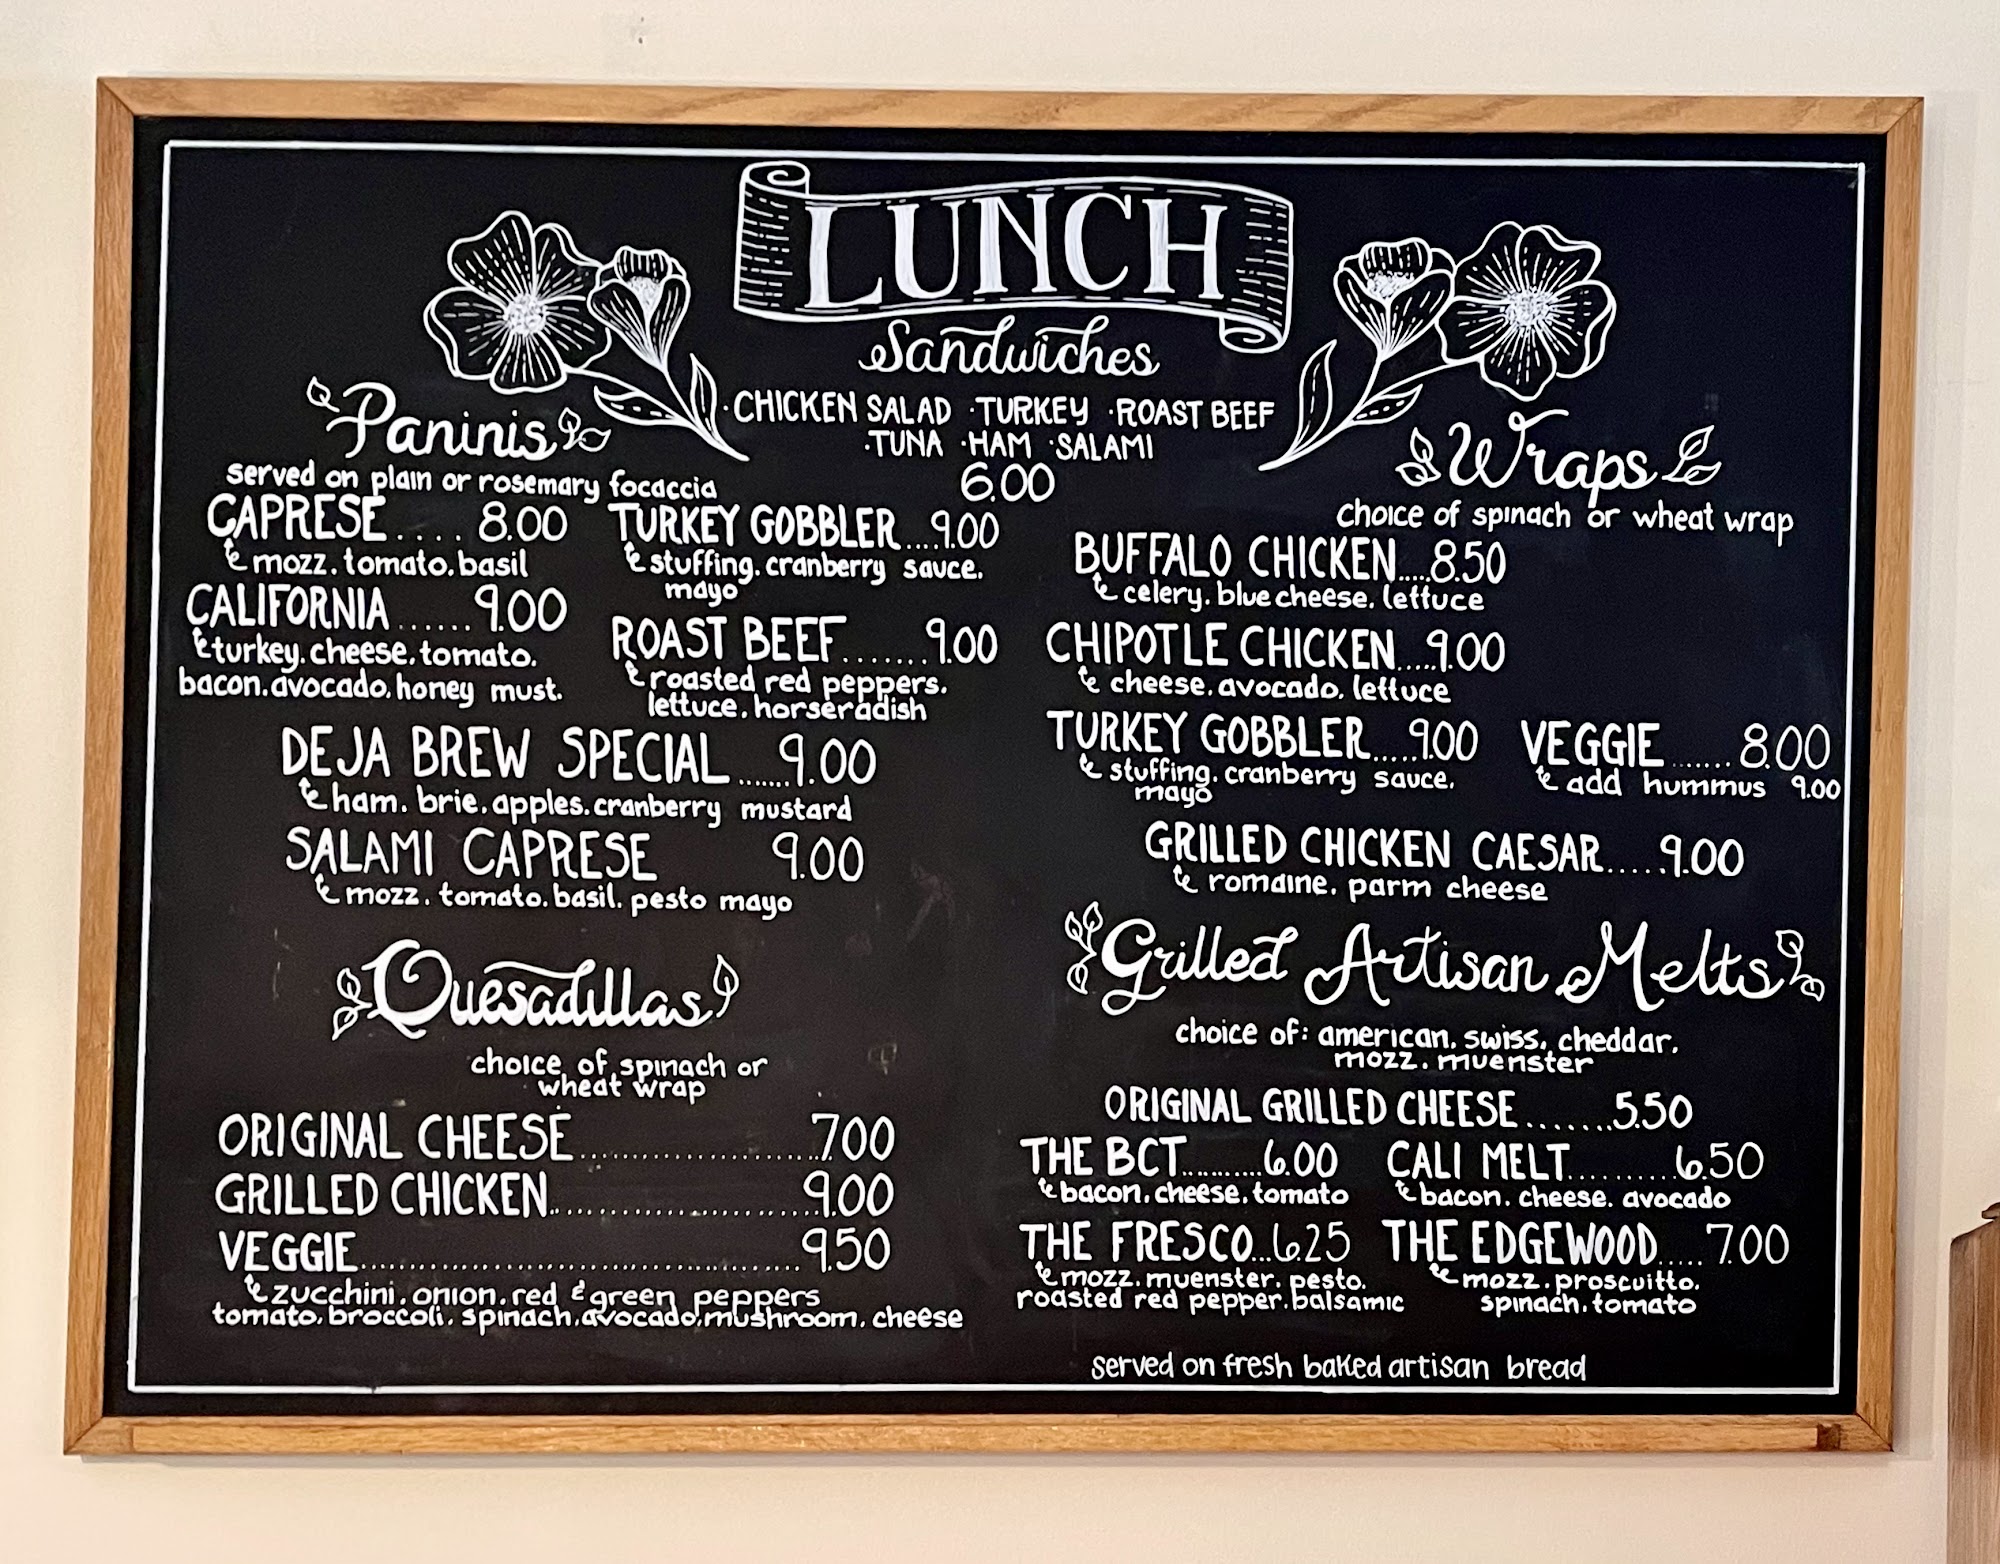 LUNCH
Sandwiches
·CHICKEN SALAD ·TURKEY ·ROAST BEEF
·TUNA ·HAM ·SALAMI
6.00
Paninis
served on plain or rosemary focaccia
CAPRESE.... 8.00
mozz. tomato. basil
CALIFORNIA...... 9.00
turkey. cheese. tomato.
bacon. avocado. honey must.
TURKEY GOBBLER....9.00
stuffing. cranberry sauce.
mayo
ROAST BEEF.......9.00
roasted red peppers.
lettuce. horseradish
DEJA BREW SPECIAL.......9.00
ham. brie. apples. cranberry mustard
SALAMI CAPRESE 9.00
mozz. tomato. basil. pesto mayo
Quesadillas
choice of spinach or
wheat wrap
ORIGINAL CHEESE........................7.00
GRILLED CHICKEN..........................9.00
VEGGIE..........................................9.50
zucchini. onion. red & green peppers
tomato. broccoli. spinach. avocado. mushroom. cheese
Wraps
choice of spinach or wheat wrap
BUFFALO CHICKEN.....8.50
celery. blue cheese. lettuce
CHIPOTLE CHICKEN.....9.00
cheese. avocado. lettuce
TURKEY GOBBLER.....9.00
stuffing. cranberry sauce.
mayo
VEGGIE....... 8.00
add hummus 9.00
GRILLED CHICKEN CAESAR.....9.00
romaine. parm cheese
Grilled Artisan Melts
choice of: american. swiss. cheddar.
mozz. muenster
ORIGINAL GRILLED CHEESE.......5.50
THE BCT..........6.00
bacon. cheese. tomato
CALI MELT..........6.50
bacon. cheese. avocado
THE FRESCO...6.25
mozz. muenster. pesto.
roasted red pepper. balsamic
THE EDGEWOOD.....7.00
mozz. proscuitto.
spinach. tomato
served on fresh baked artisan bread